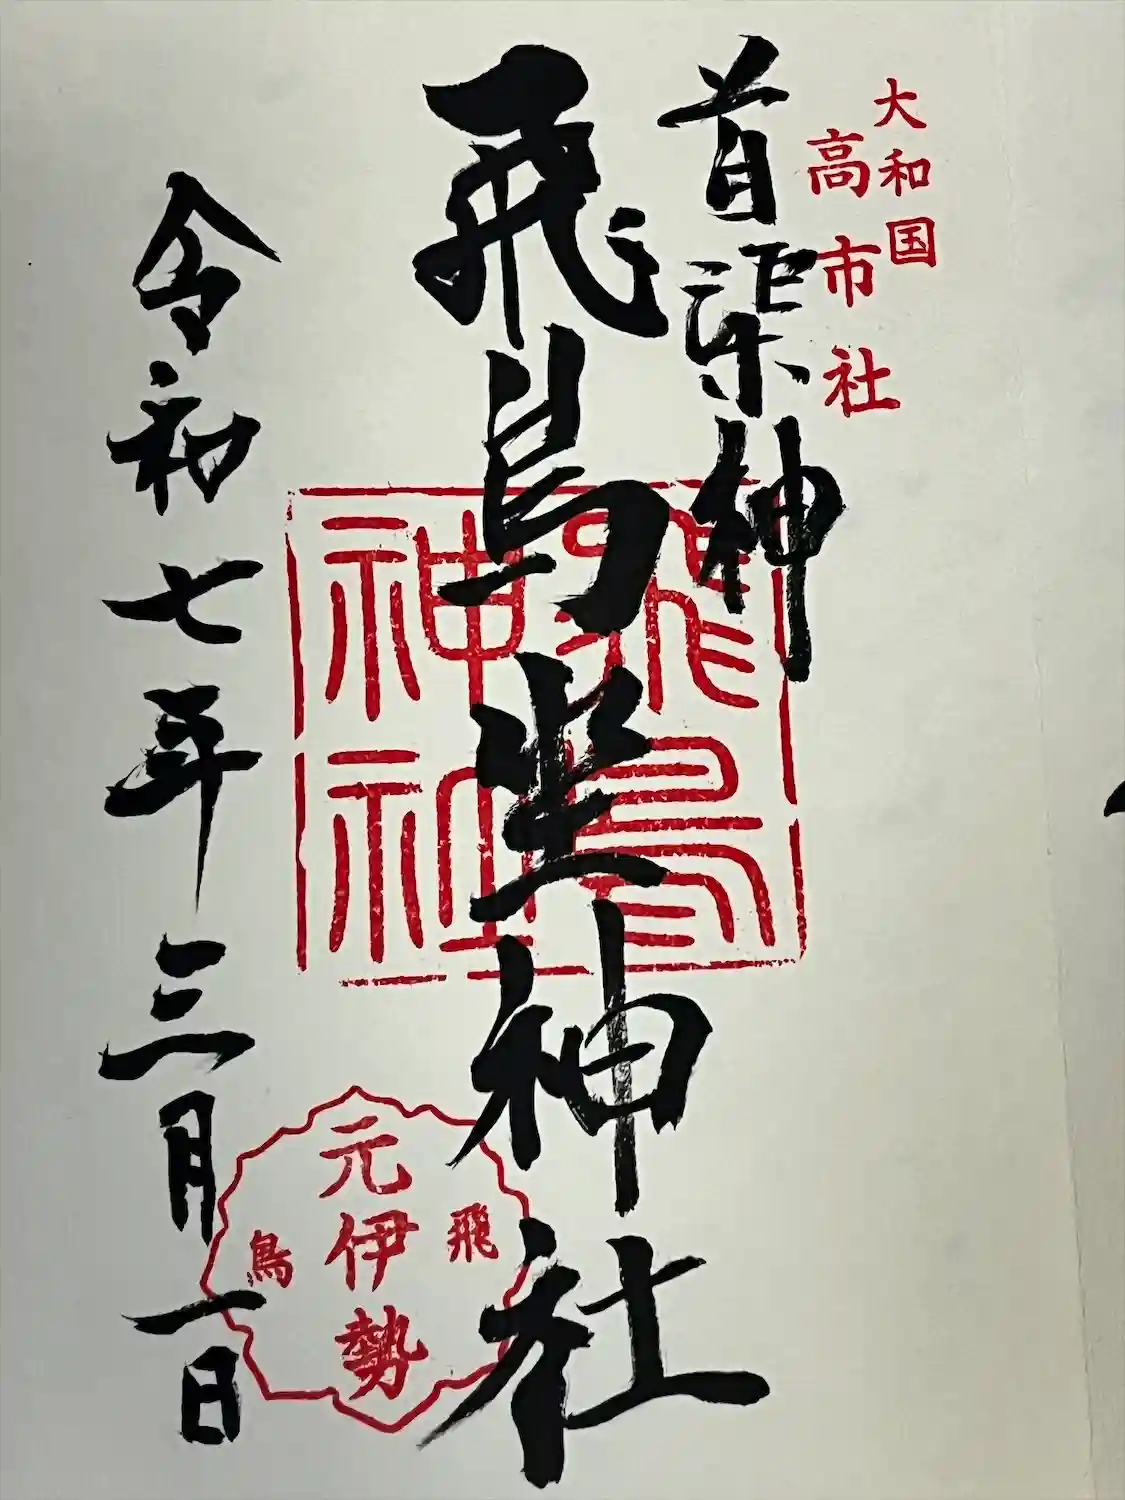 大和国
高市社
首渠神
飛鳥坐神社
飛鳥
神社
飛鳥
元伊勢
令和七年三月一日